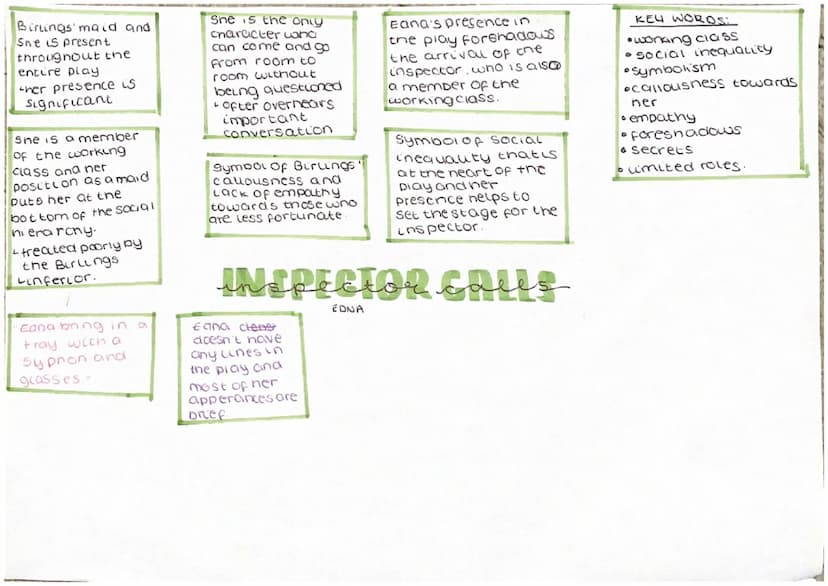 Birlings' maid and
she is present
throughout the
entire play
↳her presence is
significant
She is the only
character who
can come and go
from room to
room without
being questioned
↳ofter overhears
important
conversation
Edna's presence in
the play forshadows
the arrival of the
inspector, who is also
a member of the
working class.
KEY WORDS:
•working class
•social inequality
•symbolism
•callousness towards
her
•empathy
•foreshadows
•secrets
•limited roles.
She is a member
of the working
class and her
position as a maid
puts her at the
bottom of the social
hierarchy.
↳treated poorly by
the Birlings
↳inferior.
Symbol of Birlings'
callousness and
lack of empathy
towards those who
are less fortunate.
Symbol of social
inequality that is
at the heart of the
play and her
presence helps to
set the stage for the
inspector.
INSPECTOR CALLS
inspector calls
EDNA
"Edna bring in a
tray with a
syphon and
glasses."
Edna
doesn't have
any lines in
the play and
most of her
apperances are
brief